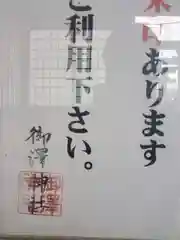 末日あります
ご利用下さい。
御澤
神社